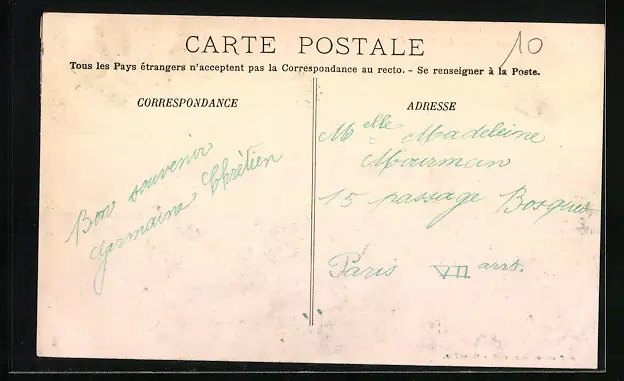 CARTE POSTALE
10
Tous les Pays étrangers n'acceptent pas la Correspondance au recto. - Se renseigner à la Poste.
CORRESPONDANCE
Bon souvenir
Germaine Chrétien
ADRESSE
Melle Madeleine
Maurman
15 passage Bosquet
Paris VII arrt.